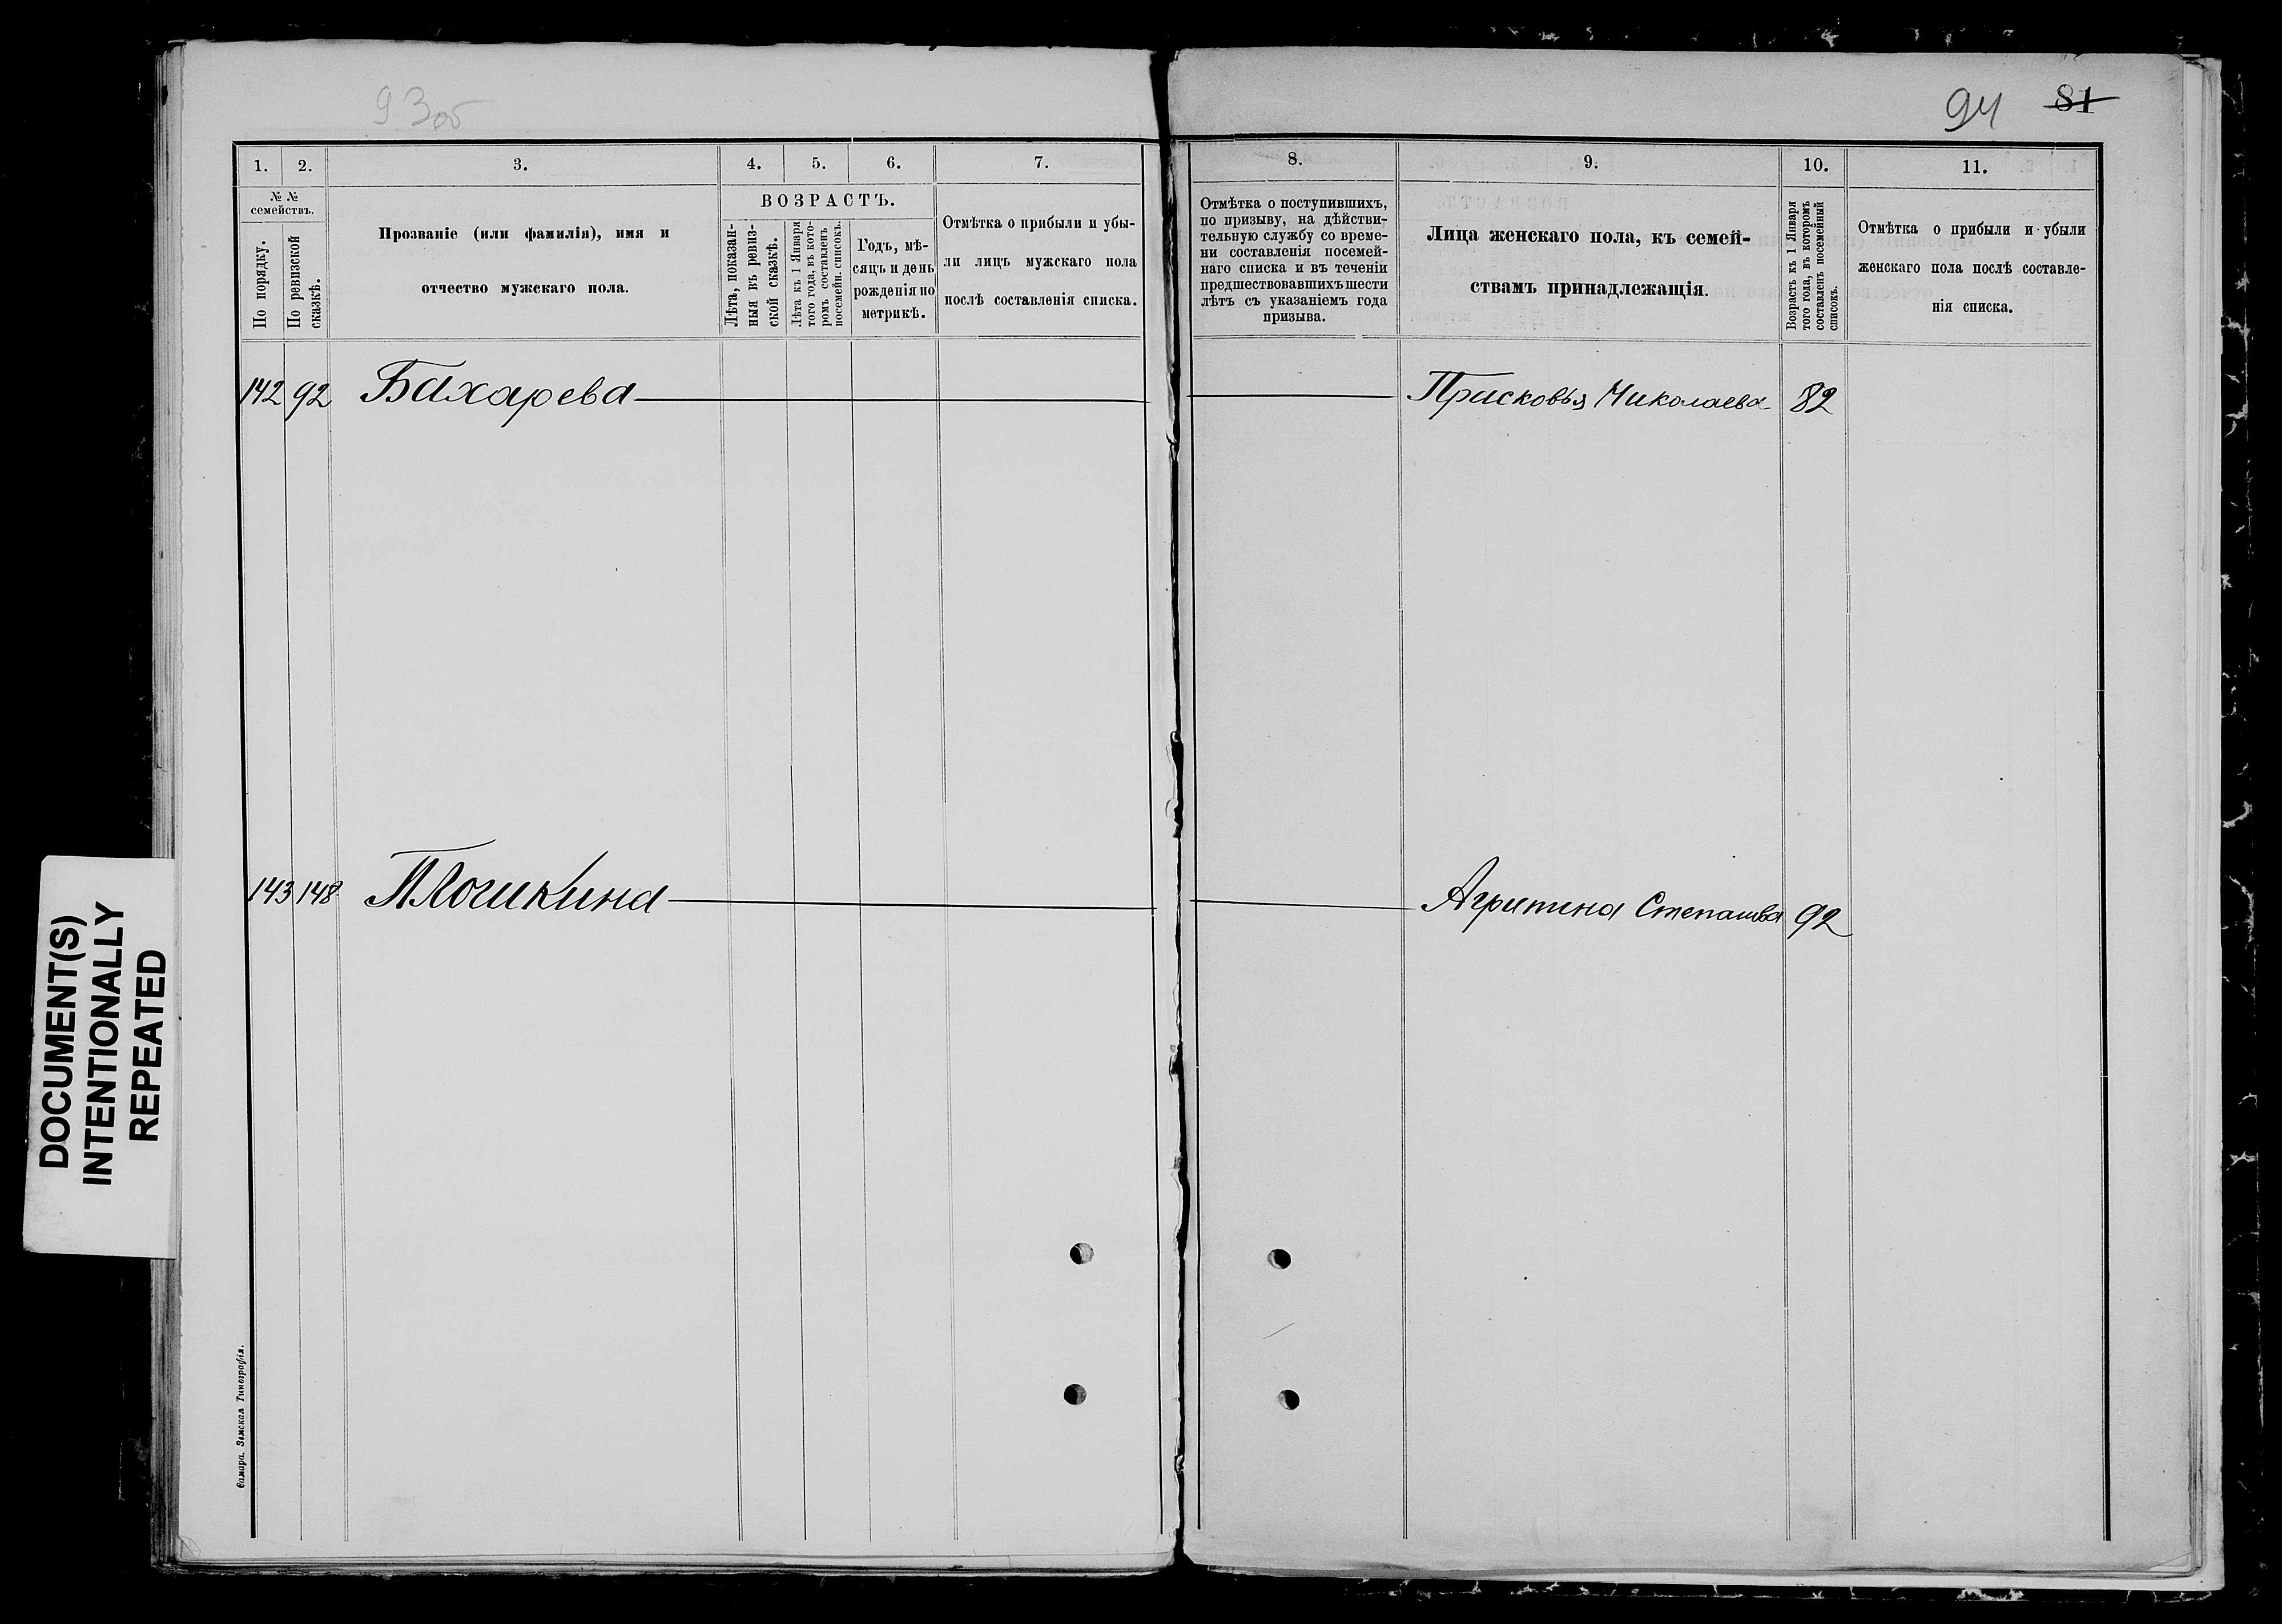 93об
94 81
1. 2. 3. 4. 5. 6. 7.
№ №
семействъ.
По порядку.
По ревизской
сказкѣ.
Прозваніе (или фамилія), имя и
отчество мужскаго пола.
ВОЗРАСТЪ.
Лѣта, показан-
ныя въ ревиз-
ской сказкѣ.
Лѣта къ 1 Января
того года, въ кото-
ромъ составленъ
посемейн. списокъ.
Годъ, мѣ-
сяцъ и день
рожденія по
метрикѣ.
Отмѣтка о прибыли и убы-
ли лицъ мужскаго пола
послѣ составленія списка.
8. 9. 10. 11.
Отмѣтка о поступившихъ,
по призыву, на дѣйстви-
тельную службу со време-
ни составленія посемей-
наго списка и въ теченіи
предшествовавшихъ шести
лѣтъ съ указаніемъ года
призыва.
Лица женскаго пола, къ семей-
ствамъ принадлежащія.
Возрастъ къ 1 Января
того года, въ которомъ
составленъ посемейный
списокъ.
Отмѣтка о прибыли и убыли
женскаго пола послѣ составле-
нія списка.
142 92 Бахарева Прасковья Николаева 82
143 148 Агрипина Степанова 92
DOCUMENT(S)
INTENTIONALLY
REPEATED
Самара. Земская Типографія.